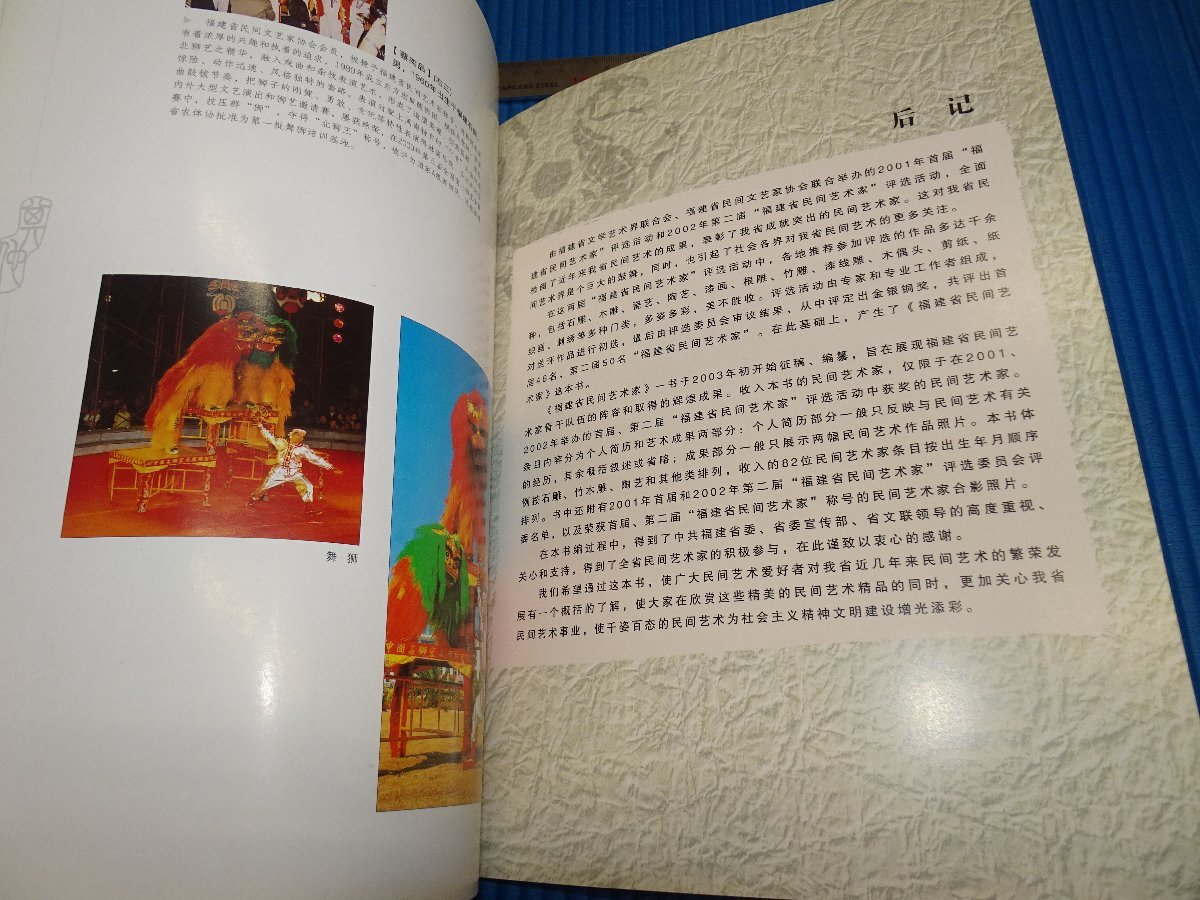 福建省民间文艺家协会会员，被授予福建省民间艺术家
有着浓厚的兴趣和执着的追求，1980年成立
北狮艺之精华，融入戏曲和杂技表演艺术，形成了
惊险、动作迅速、风格独特的套路。
曲鼓钹节奏，把狮子的刚健、勇敢、
内外大型文艺演出和狮艺邀请赛，屡获殊荣，在2003年
赛中，技压群“狮”，夺得“北狮王”称号，
省农体协批准为第一批舞狮培训基地。
舞 狮
STAINLESS STEEL
后 记
由福建省文学艺术界联合会、福建省民间文艺家协会联合举办的2001年首届“福
建省民间艺术家”评选活动和2002年第二届“福建省民间艺术家”评选活动，全面
检阅了近年来我省民间艺术的成果，表彰了我省成就突出的民间艺术家。这对我省民
间艺术界是个巨大的鼓舞，同时，也引起了社会各界对我省民间艺术的更多关注。
在这两届“福建省民间艺术家”评选活动中，各地推荐参加评选的作品多达千余
种，包括石雕、木雕、瓷艺、陶艺、漆画、根雕、竹雕、漆线雕、木偶头、剪纸、纸
织画、刺绣等多种门类，多姿多彩，美不胜收。评选活动由专家和专业工作者组成，
对送评作品进行初选，最后由评选委员会审议结果，从中评定出金银铜奖，共评出首
届46名、第二届50名“福建省民间艺术家”。在此基础上，产生了《福建省民间艺
术家》这本书。
《福建省民间艺术家》一书于2003年初开始征稿、编纂，旨在展现福建省民间艺
术家骨干队伍的阵容和取得的辉煌成果。收入本书的民间艺术家，仅限于在2001、
2002年举办的首届、第二届“福建省民间艺术家”评选活动中获奖的民间艺术家。
条目内容分为个人简历和艺术成果两部分：个人简历部分一般只反映与民间艺术有关
的经历，其余概括叙述或省略；成果部分一般只展示两幅民间艺术作品照片。本书体
例按石雕、竹木雕、陶艺和其他类排列，收入的82位民间艺术家条目按出生年月顺序
排列。书中还附有2001年首届和2002年第二届“福建省民间艺术家”评选委员会评
委名单，以及荣获首届、第二届“福建省民间艺术家”称号的民间艺术家合影照片。
在本书编过程中，得到了中共福建省委、省委宣传部、省文联领导的高度重视、
关心和支持，得到了全省民间艺术家的积极参与，在此谨致以衷心的感谢。
我们希望通过这本书，使广大民间艺术爱好者对我省近几年来民间艺术的繁荣发
展有一个概括的了解，使大家在欣赏这些精美的民间艺术精品的同时，更加关心我省
民间艺术事业，使千姿百态的民间艺术为社会主义精神文明建设增光添彩。